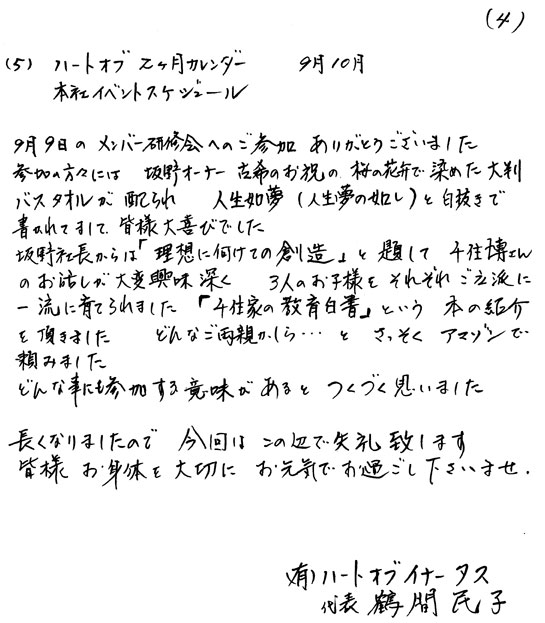 (4)
(5) ハートオブ 2ヶ月カレンダー 9月10月
本社イベントスケジュール
9月9日の メンバー研修会へのご参加 ありがとうございました
参加の方々には 坂野オーナー 古希のお祝の 桜の花弁で染めた大判
バスタオルが 配られ 人生如夢 (人生夢の如し) と白抜きで
書かれてまして 皆様大喜びでした
坂野社長からは「理想に向けての創造」と題して 千住博さん
のお話しが大変興味深く 3人のお子様を それぞれご立派に
一流に育てられました 「千住家の教育白書」という 本の紹介
を頂きました どんなご両親かしら…と さっそく アマゾンで
頼みました
どんな事にも参加する意味があると つくづく思いました
長くなりましたので 今回は この辺で失礼致します
皆様 お身体を大切に お元気でお過ごし下さいませ.
(有)ハートオブイナータス
代表 鶴間民子